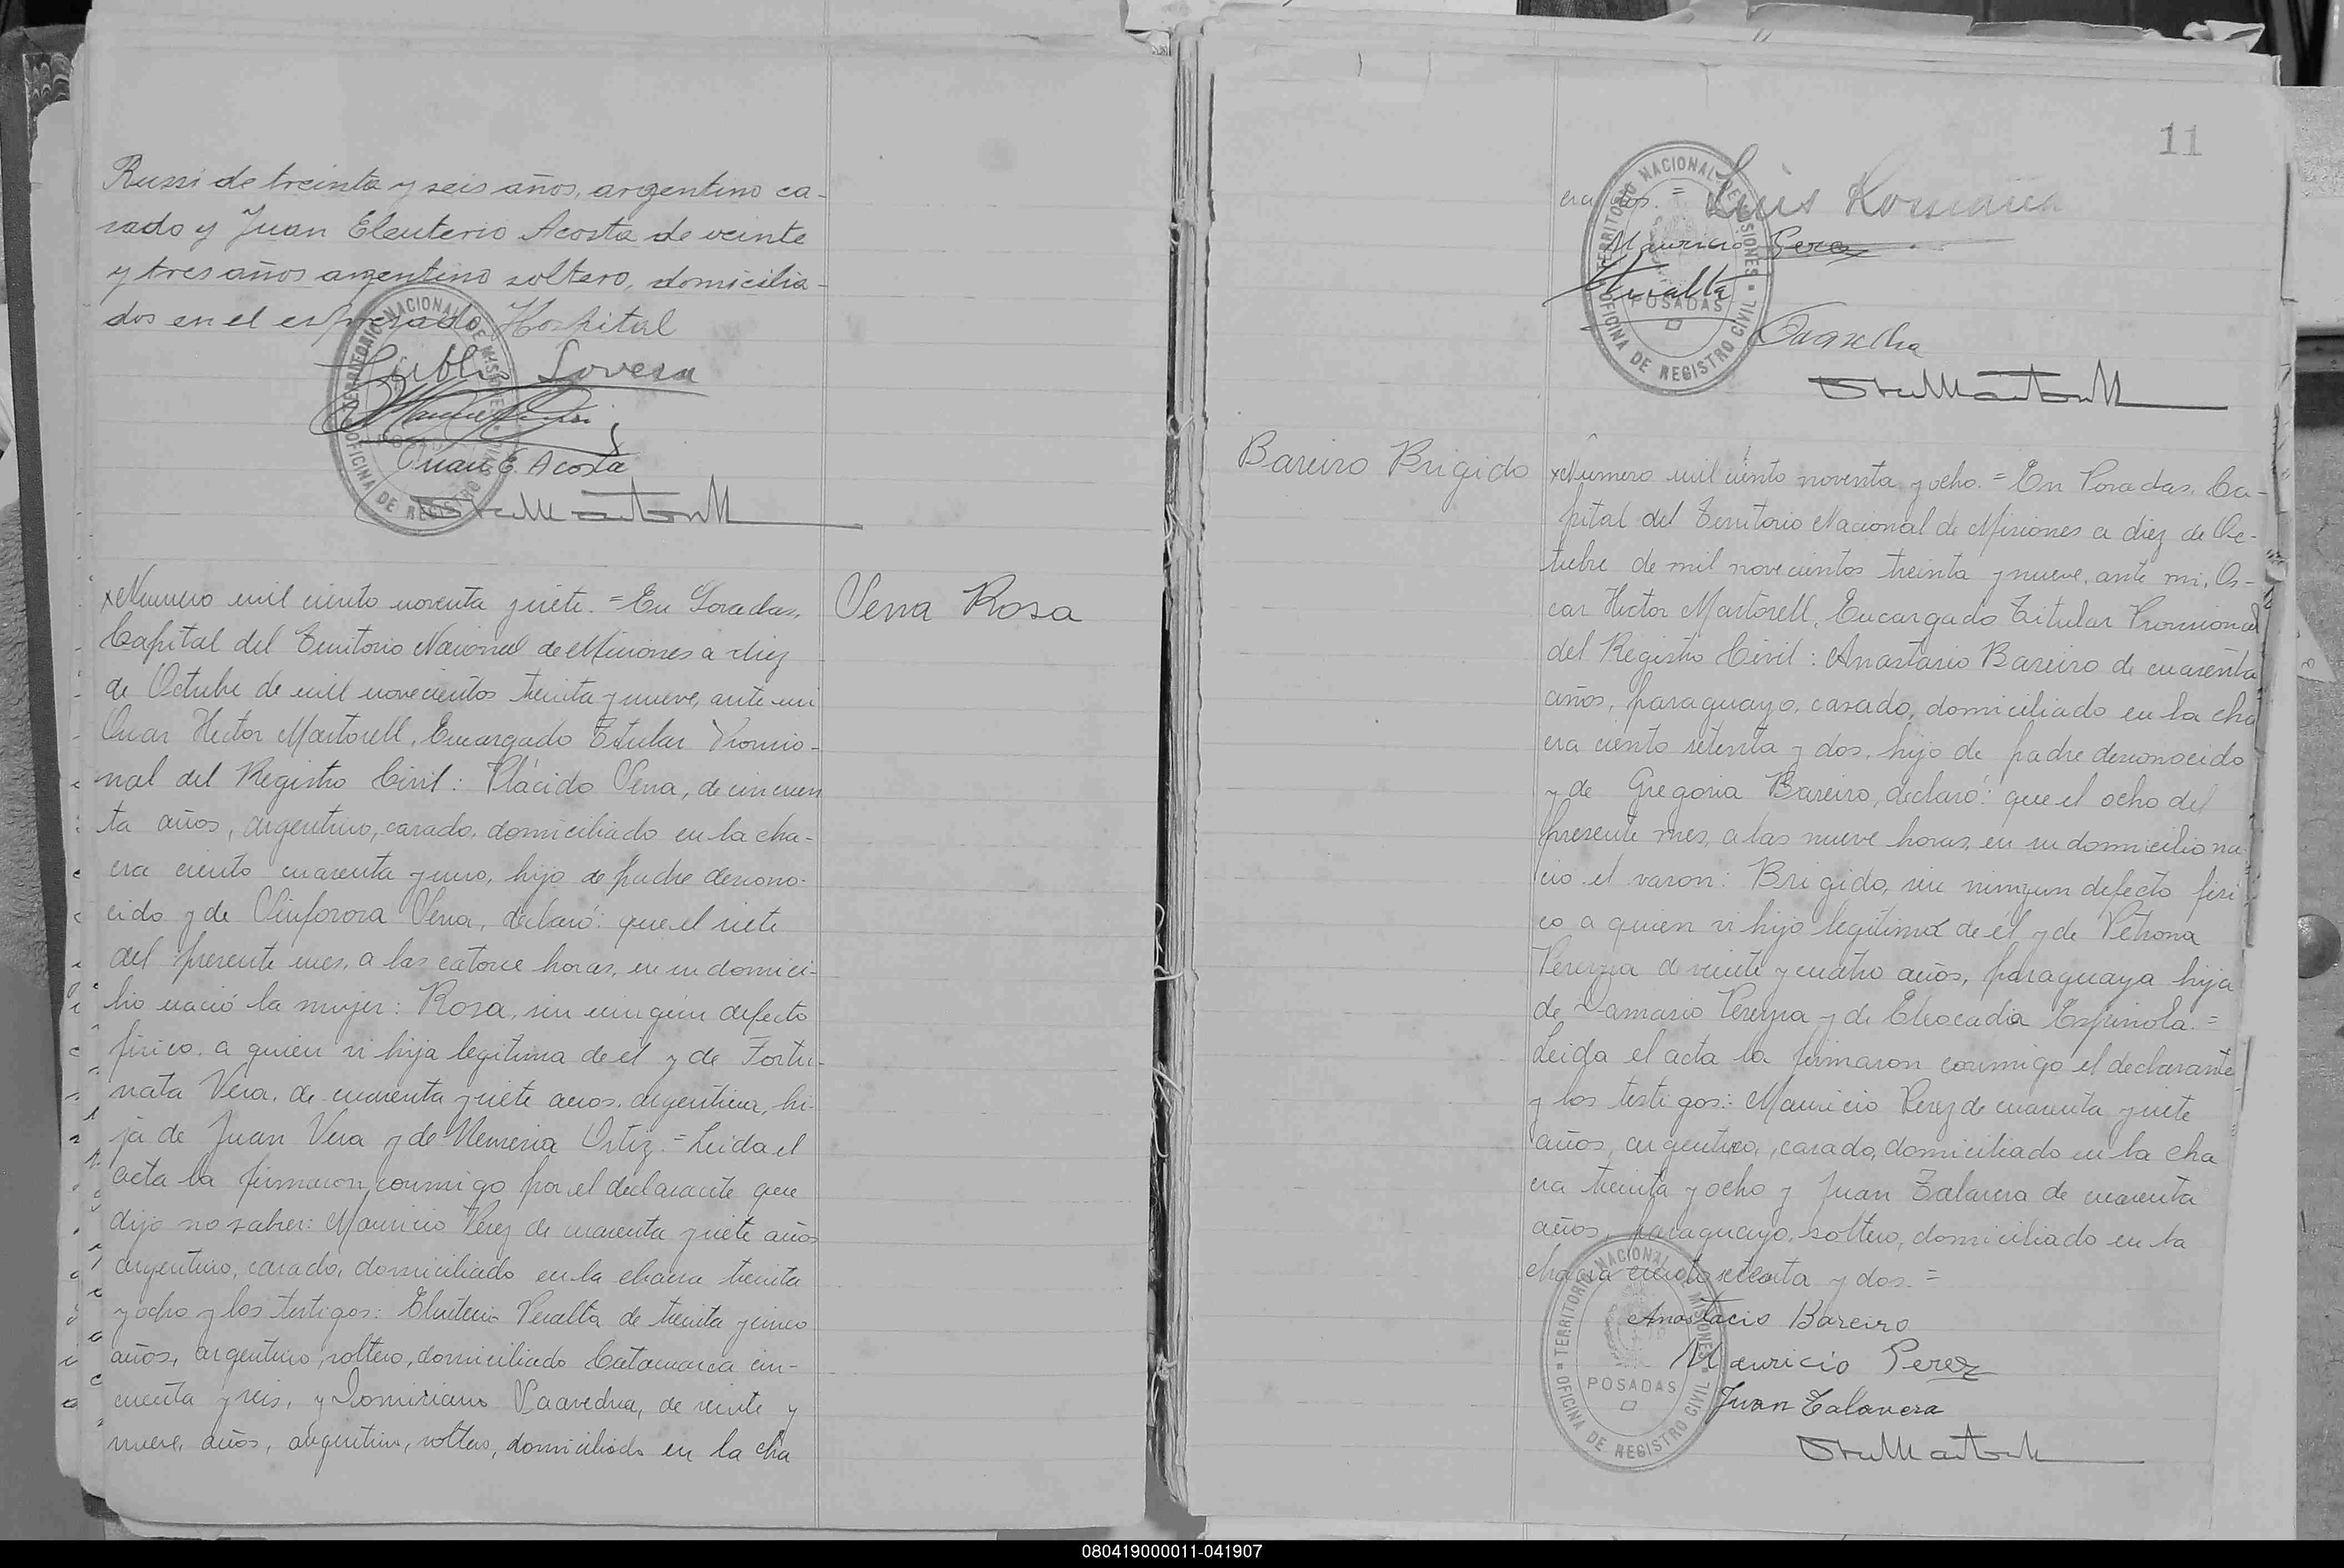 Russi de treinta y seis años, argentino ca-
sado y Juan Eleuterio Acosta de veinte
y tres años argentino soltero, domicilia-
dos en el expresado Hospital
Lovera
Juan E. Acosta
TERRITORIO NACIONAL DE MISIONES
POSADAS
OFICINA DE REGISTRO CIVIL
xNumero mil ciento noventa y siete. = En Posadas,
Capital del Territorio Nacional de Misiones a diez
de Octubre de mil novecientos treinta y nueve, ante mi
Oscar Hector Martorell, Encargado Titular Provisio-
nal del Registro Civil: Plácido Sena, de cincuen
ta años, argentino, casado, domiciliado en la cha-
cra ciento cuarenta y uno, hijo de padre descono-
cido y de Sinforosa Sena, declaró: que el siete
del presente mes, a las catorce horas, en su domici-
lio nació la mujer: Rosa, sin ningún defecto
fisico, a quien vi hija legitima de el y de Fortu-
nata Vera, de cuarenta y siete años, argentina, hi-
ja de Juan Vera y de Nemesia Ortiz. = Leida el
acta la firmaron conmigo por el declarante que
dijo no saber: Mauricio Perez de cuarenta y siete años
argentino, casado, domiciliado en la chacra treinta
y ocho y los testigos: Eluterio Peralta de treinta y cinco
años, argentino, soltero, domiciliado Catamarca cin-
cuenta y seis, y Domiciano Saavedra, de veinte y
nueve, años, argentino, soltero, domiciliado en la cha
Sena Rosa
11
cra dos. =
Luis
Mauricio Perez
Peralta
TERRITORIO NACIONAL DE MISIONES
POSADAS
OFICINA DE REGISTRO CIVIL
Bareiro Brigido
xNumero mil ciento noventa y ocho. = En Posadas, Ca-
pital del Territorio Nacional de Misiones a diez de Oc-
tubre de mil novecientos treinta y nueve, ante mi, Os-
car Hector Martorell, Encargado Titular Provisional
del Registro Civil: Anastasio Bareiro de cuarenta
años, paraguayo, casado, domiciliado en la cha
cra ciento setenta y dos, hijo de padre desconocido
y de Gregoria Bareiro, declaró: que el ocho del
presente mes, a las nueve horas, en su domicilio na-
cio el varon: Brigido, sin ningun defecto fisi
co a quien vi hijo legitimo de él y de Petrona
Pereyra de veinte y cuatro años, paraguaya hija
de Damasio Pereyra y de Eleocadia Espinola. =
Leida el acta la firmaron conmigo el declarante
y los testigos: Mauricio Perez de cuarenta y siete
años, argentino, casado, domiciliado en la cha
cra treinta y ocho y Juan Talavera de cuarenta
años, paraguayo, soltero, domiciliado en la
chacra ciento setenta y dos. =
Anastacio Bareiro
Mauricio Perez
Juan Talavera
TERRITORIO NACIONAL DE MISIONES
POSADAS
OFICINA DE REGISTRO CIVIL
080419000011-041907